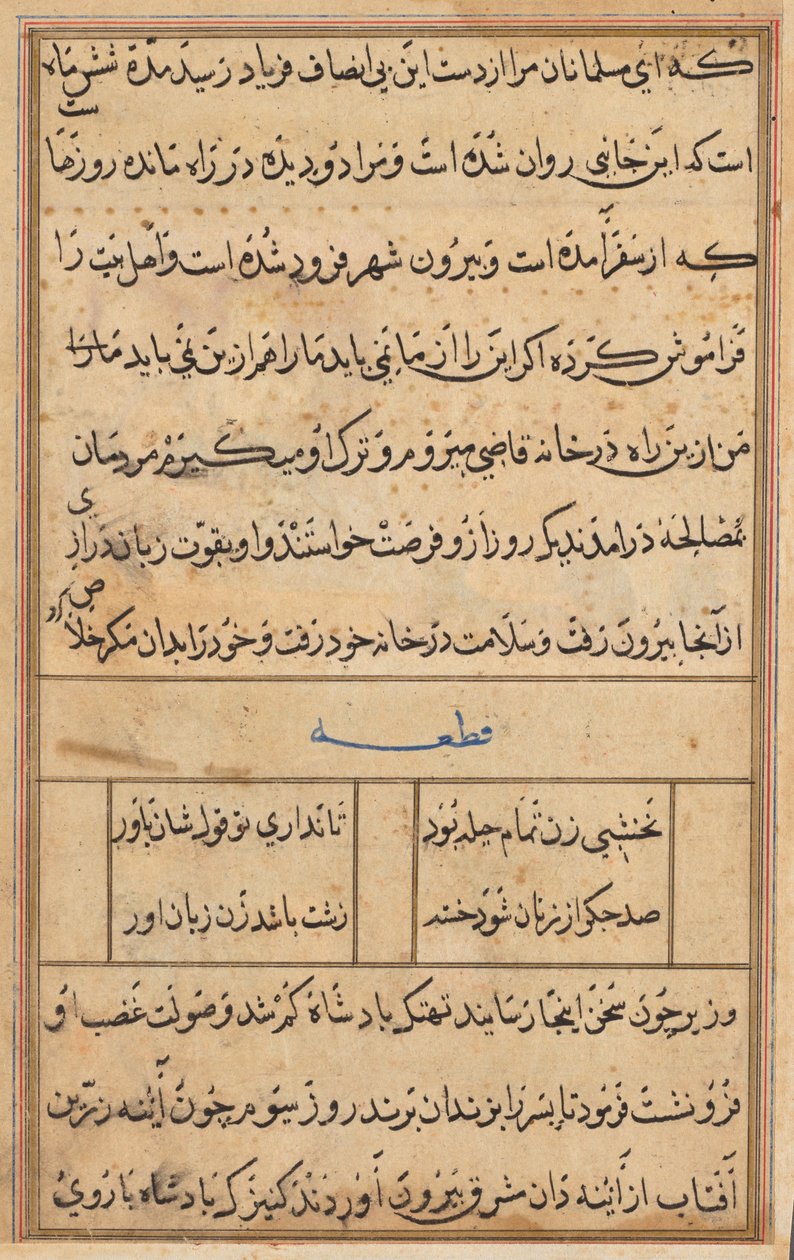 که ای مسلمانان مرا از دست این بی انصاف فریاد رسید مدة شش ماه
است که این جانبی روان شده است و مرا دو دیده در راه مانده روزها ست
که از سفر آمده است و بیرون شهر فرود شده است و اهل بیت را
فراموش کرده اکر این را از ما نمی باید ما را هم ازین نمی باید ما را
من ازین راه در خانه قاضی میروم و ترک او میکیرم مردمان
بمصالحه درامدند یک روز ازو فرصت خواستند و او بقوت زبان درازی
از آنجا بیرون رفت و سلامت در خانه خود رفت و خود را بدان مکر خلاص کرد
قطعه
نخشبی زن تمام حیله بود
تا نداری تو قول شان باور
صد جکر از زنان شود خسته
زشت باشد زن زبان اور
وزیر چون سخن اینجا رسانید تهتک بادشاه کم شد و صولت غضب او
فرو نشت فرمود تا پسر را بزندان برند روز سیوم چون آئنه زرین
آفتاب از آئینه دان مشرق بیرون آوردند کنیزک بادشاه با روی